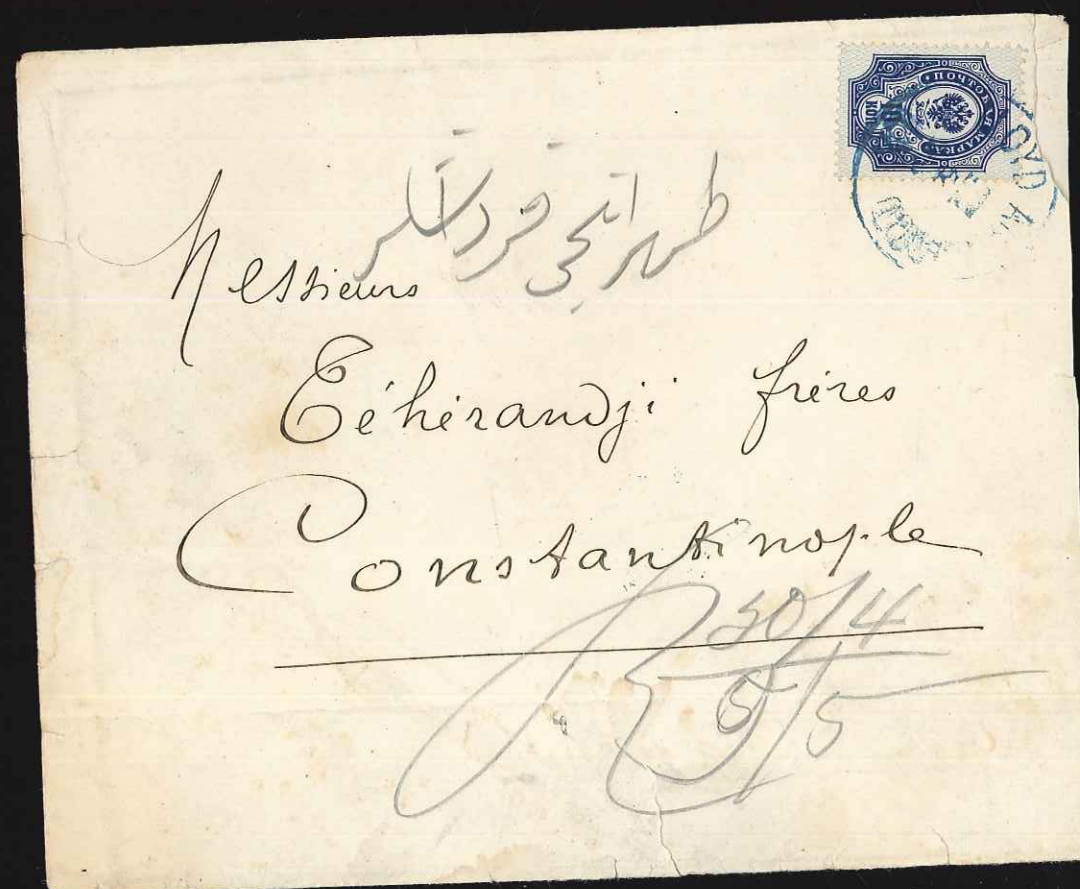 ПОЧТОВАЯ МАРКА
طهرانجى قرداشلر
Messieurs
Téhérandji frères
Constantinople
30/4
5/5